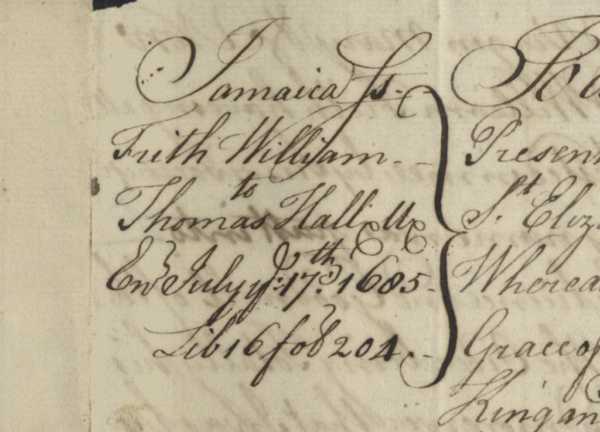 Jamaica Ss.
Frith William
to
Thomas Hall &c
Entd July ye 17th 1685
Lib 16 fol 204
Presen
St Eliz
Wherea
Grace of
King an